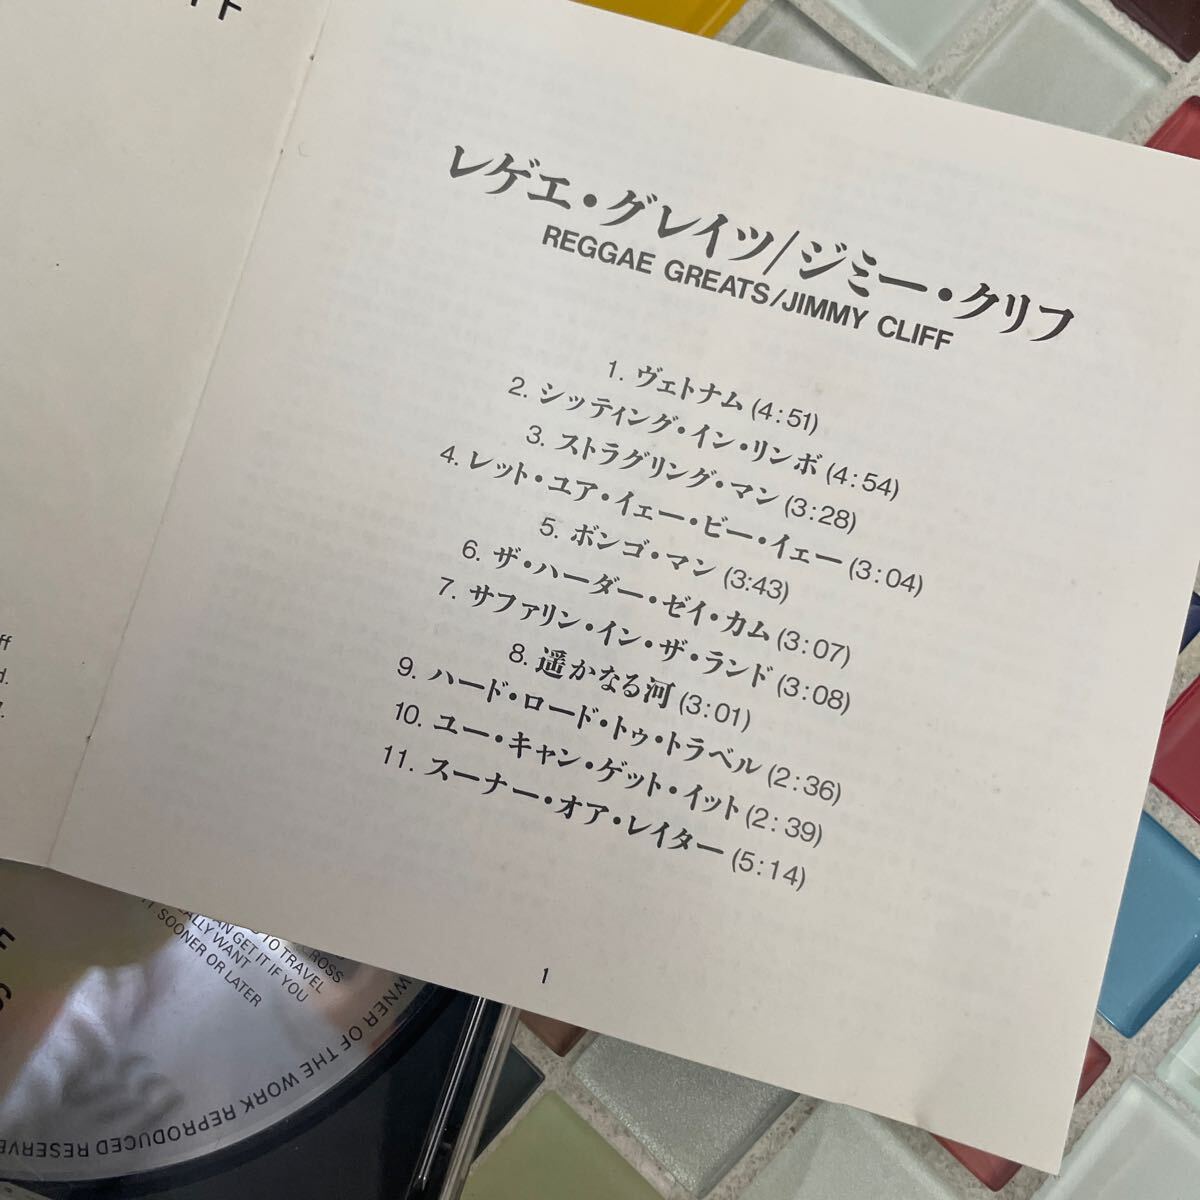 FF
レゲエ・グレイツ/ジミー・クリフ
REGGAE GREATS/JIMMY CLIFF
1. ヴェトナム (4:51)
2. シッティング・イン・リンボ (4:54)
3. ストラグリング・マン (3:28)
4. レット・ユア・イェー・ビー・イェー (3:04)
5. ボンゴ・マン (3:43)
6. ザ・ハーダー・ゼイ・カム (3:07)
7. サファリン・イン・ザ・ランド (3:08)
8. 遥かなる河 (3:01)
9. ハード・ロード・トゥ・トラベル (2:36)
10. ユー・キャン・ゲット・イット (2:39)
11. スーナー・オア・レイター (5:14)
1
ff
d.
ROSS
TO TRAVEL
AN GET IT IF YOU
ALLY WANT
IT SOONER OR LATER
WNER OF THE WORK REPRODUCED RESERVE